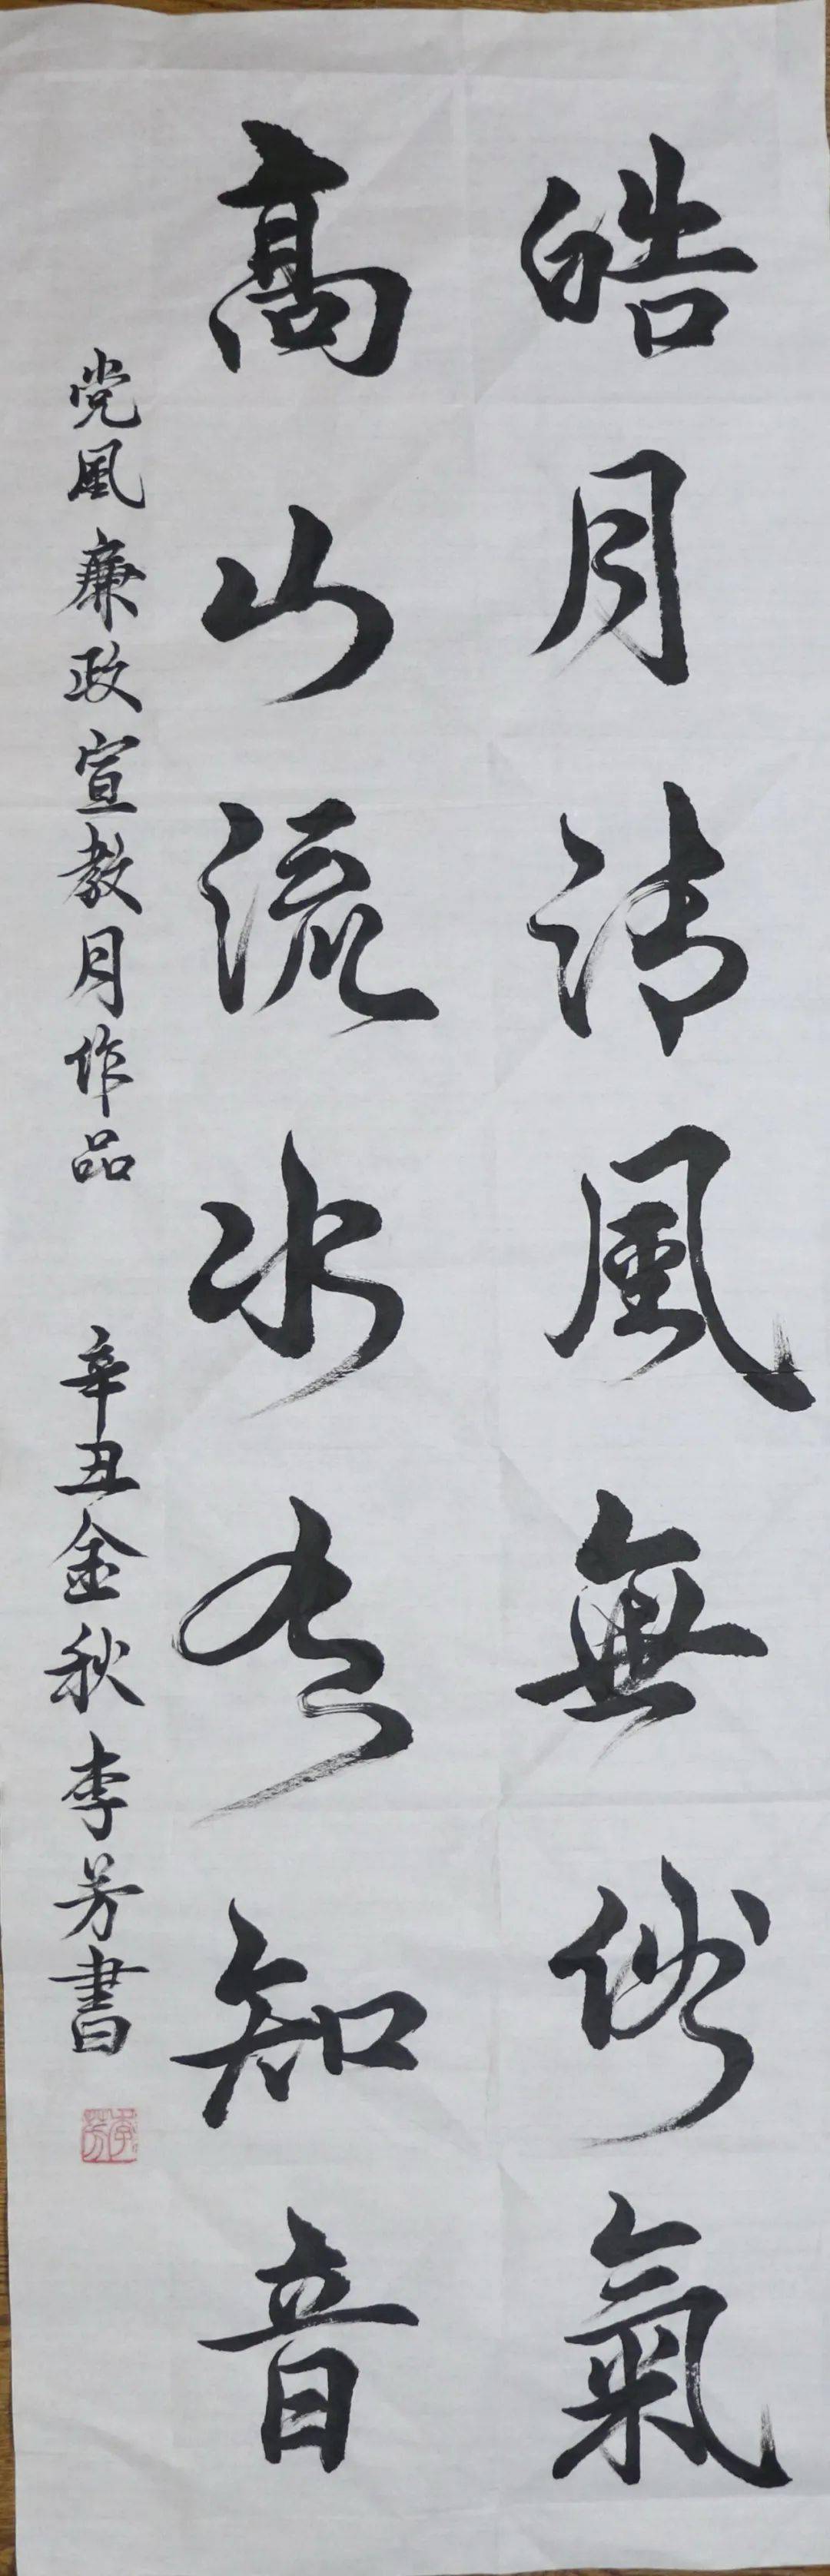 皓月清風無俗氣
高山流水有知音
党風廉政宣教月作品 辛丑金秋李芳書
李芳